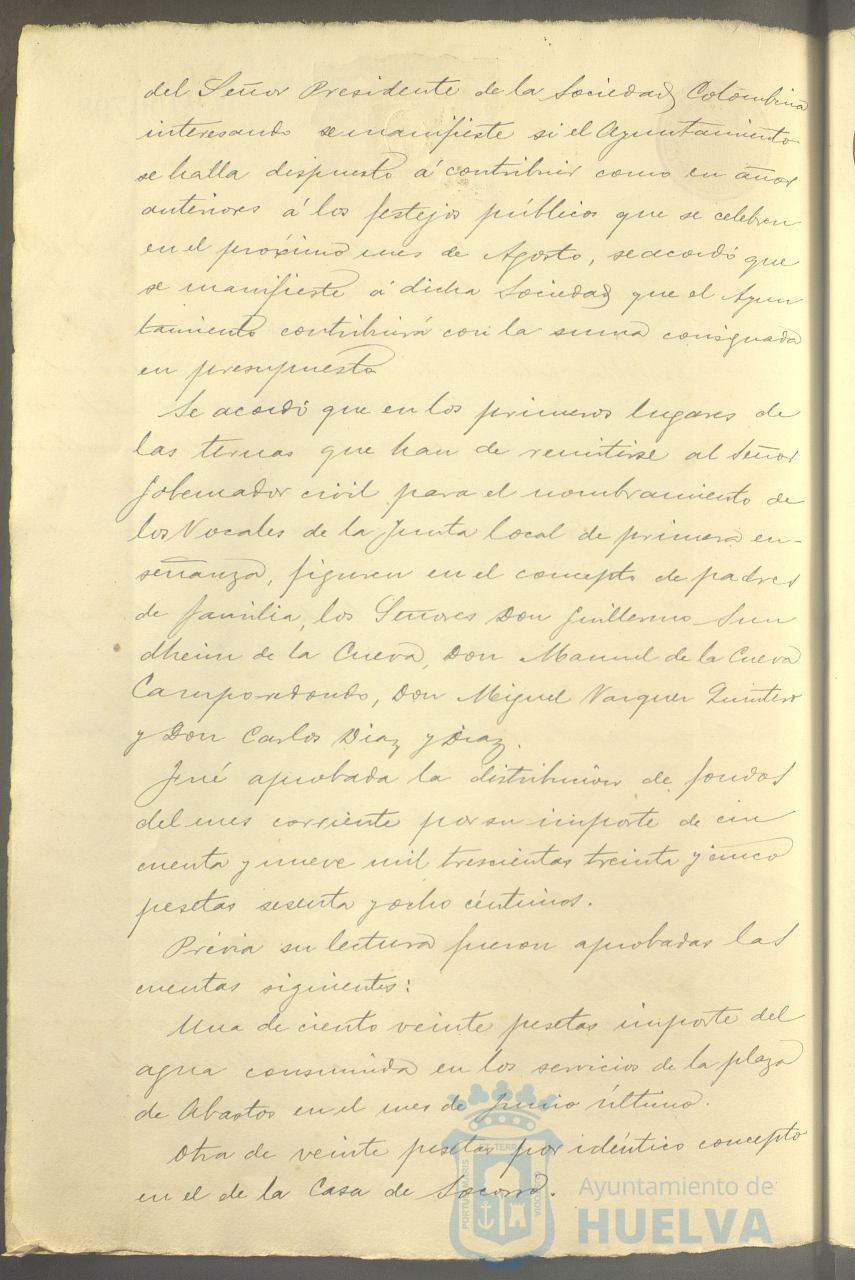 del Señor Presidente de la Sociedad Colombina
interesando se manifieste si el Ayuntamiento
se halla dispuesto á contribuir como en años
anteriores á los festejos públicos que se celebren
en el próximo mes de Agosto, se acordó que
se manifieste á dicha Sociedad que el Ayun
tamiento contribuirá con la suma consignada
en presupuesto
Se acordó que en los primeros lugares de
las ternas que han de remitirse al Señor
Gobernador civil para el nombramiento de
los Vocales de la Junta local de primera en-
señanza, figuren en el concepto de padres
de familia, los Señores Don Guillermo Sun
dheim de la Cueva, Don Manuel de la Cueva
Camporedondo, Don Miguel Vazquez Quintero
y Don Carlos Diaz y Diaz.
Fué aprobada la distribucion de fondos
del mes corriente por su importe de cin
cuenta y nueve mil trescientas treinta y cinco
pesetas sesenta y ocho céntimos.
Prévia su lectura fueron aprobadas las
cuentas siguientes:
Una de ciento veinte pesetas importe del
agua consumida en los servicios de la plaza
de Abastos en el mes de Junio último.
Otra de veinte pesetas por idéntico concepto
en el de la Casa de Socorro.
PORTUS MARIS ET TERRAE CUSTODIA
Ayuntamiento de
HUELVA